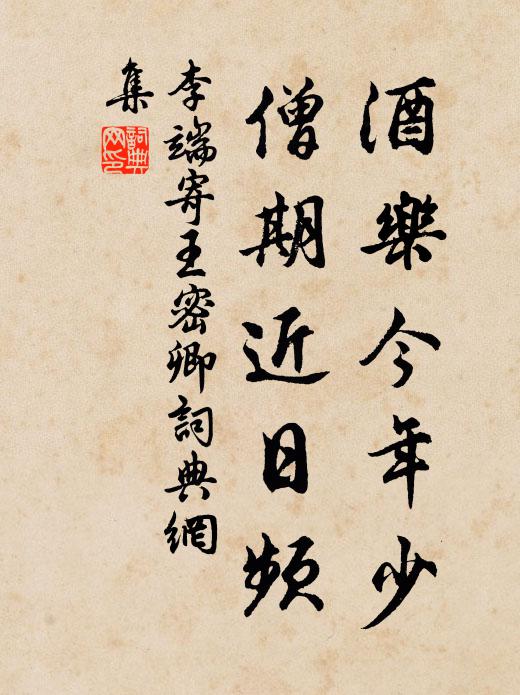 酒樂今年少
僧期近日頻
李端寄王密卿詞典網
集
詞典
网印